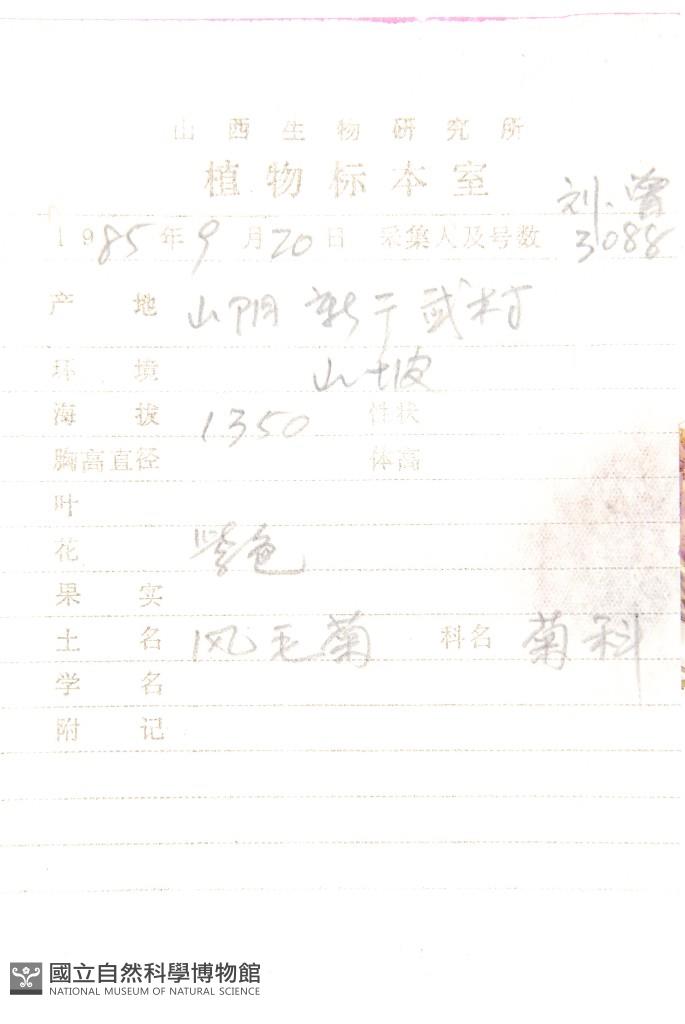 山西生物研究所
植物标本室
刘、曾
1985年9月20日 采集人及号数 3088
产地 山阴 新于武村
环境 山坡
海拔 1350 性状
胸高直径 体高
叶
花 紫色
果实
土名 风毛菊 科名 菊科
学名
附记
國立自然科學博物館
NATIONAL MUSEUM OF NATURAL SCIENCE